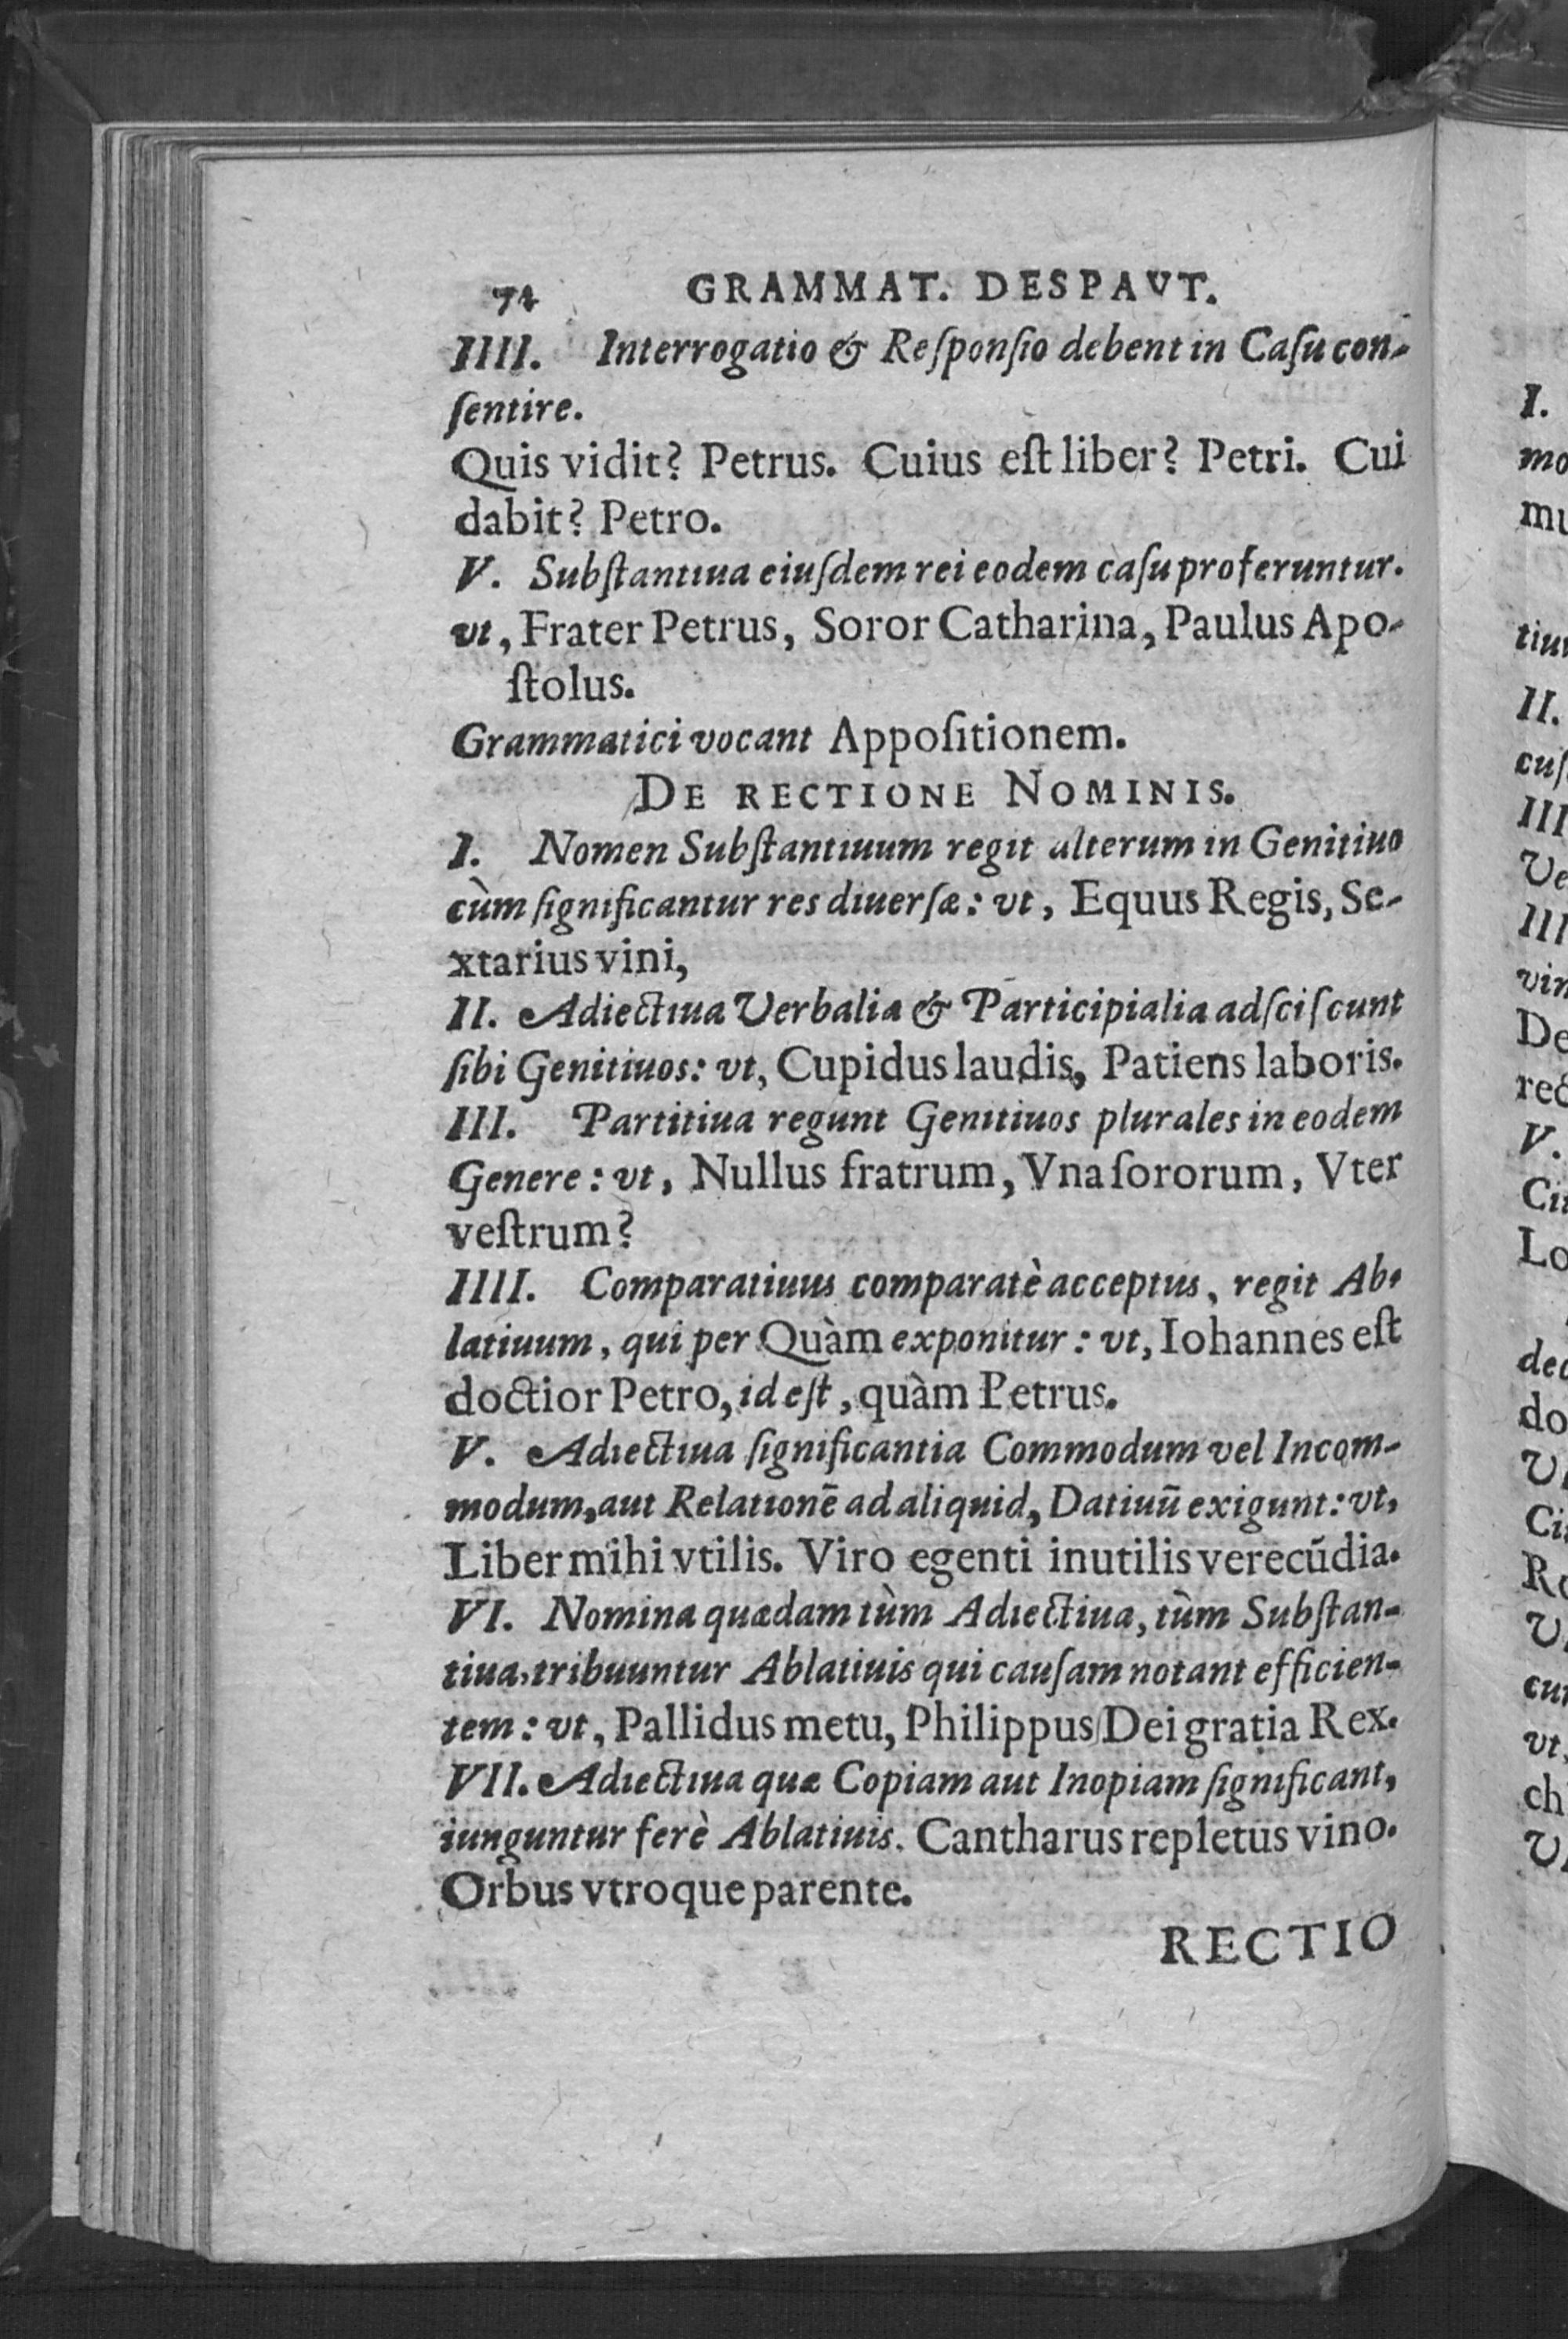 74 GRAMMAT. DESPAVT.
IIII. Interrogatio & Reſponſio debent in Caſu con-
ſentire.
Quis vidit? Petrus. Cuius eſt liber? Petri. Cui
dabit? Petro.
V. Subſtantiua eiuſdem rei eodem caſu proferuntur.
vt, Frater Petrus, Soror Catharina, Paulus Apo-
ſtolus.
Grammatici vocant Appoſitionem.
DE RECTIONE NOMINIS.
I. Nomen Subſtantiuum regit alterum in Genitiuo
cùm ſignificantur res diuerſæ: vt, Equus Regis, Se-
xtarius vini,
II. Adiectiua Verbalia & Participialia adſciſcunt
ſibi Genitiuos: vt, Cupidus laudis, Patiens laboris.
III. Partitiua regunt Genitiuos plurales in eodem
Genere: vt, Nullus fratrum, Vna ſororum, Vter
veſtrum?
IIII. Comparatiuus comparatè acceptus, regit Ab-
latiuum, qui per Quàm exponitur: vt, Iohannes eſt
doctior Petro, id eſt, quàm Petrus.
V. Adiectiua ſignificantia Commodum vel Incom-
modum, aut Relationē ad aliquid, Datiuū exigunt: vt,
Liber mihi vtilis. Viro egenti inutilis verecūdia.
VI. Nomina quædam tùm Adiectiua, tùm Subſtan-
tiua, tribuuntur Ablatiuis qui cauſam notant efficien-
tem: vt, Pallidus metu, Philippus Dei gratia Rex.
VII. Adiectiua quæ Copiam aut Inopiam ſignificant,
iunguntur ferè Ablatiuis. Cantharus repletus vino.
Orbus vtroque parente.
RECTIO